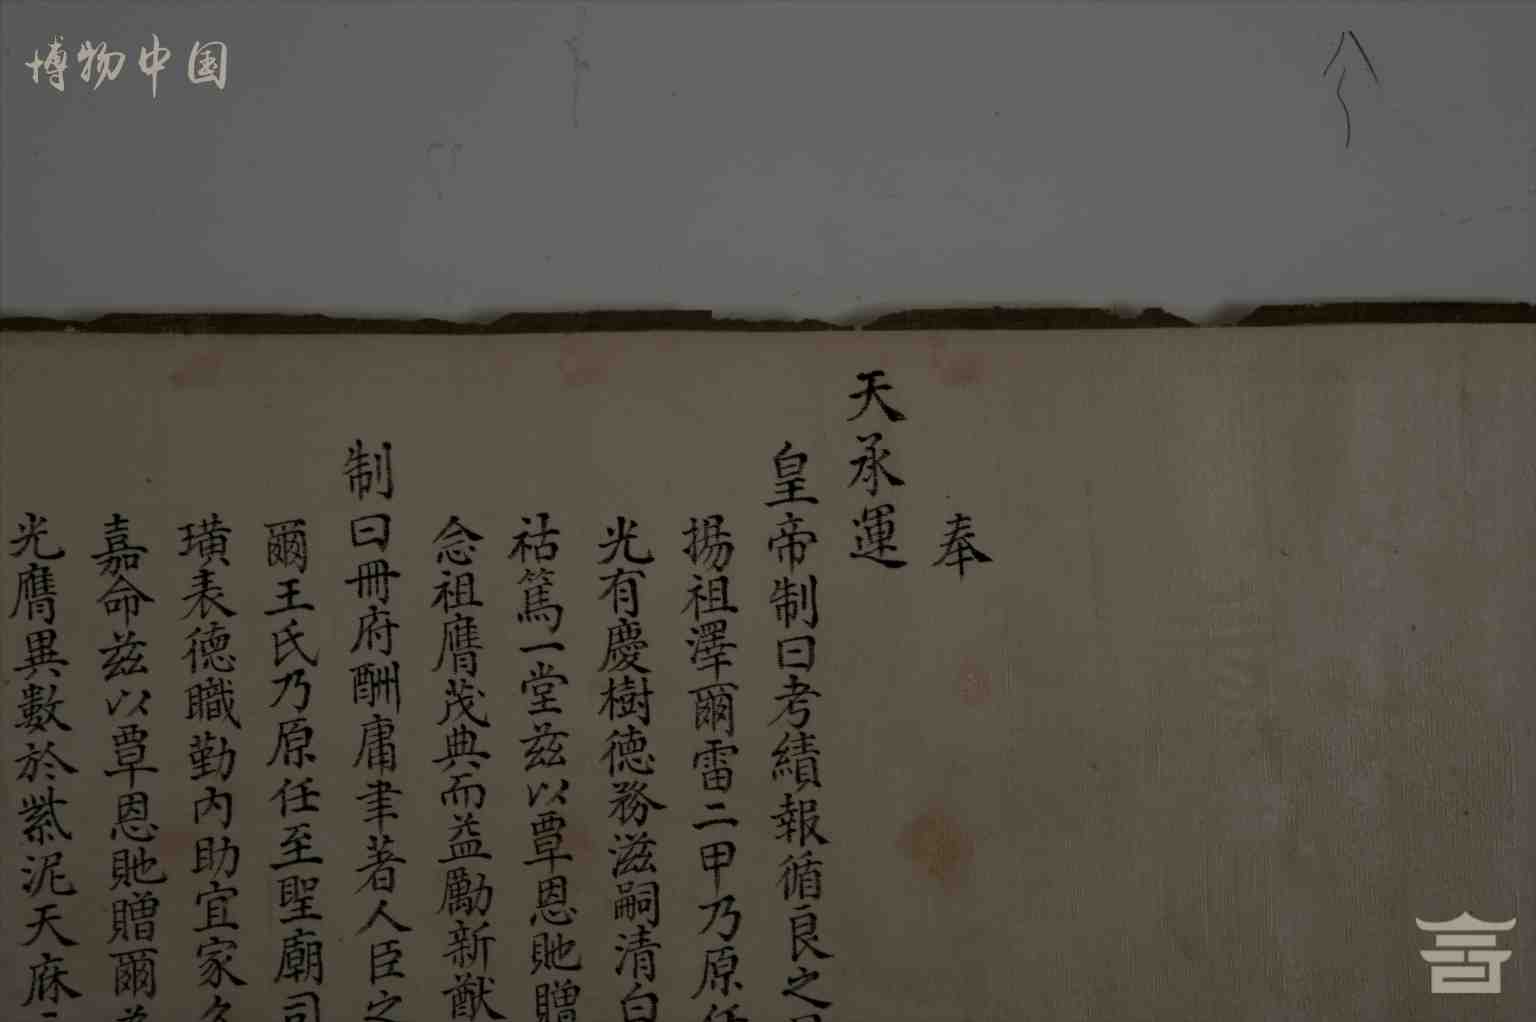 博物中国
奉
天承運
皇帝制曰考績報循良之
揚祖澤爾雷二甲乃原任
光有慶樹德務滋嗣清白
祜篤一堂茲以覃恩貤贈
念祖膺茂典而益勵新猷
制曰冊府酬庸聿著人臣之
爾王氏乃原任至聖廟司
璜表德職勤內助宜家久
嘉命茲以覃恩貤贈爾為
光膺異數於紫泥天庥